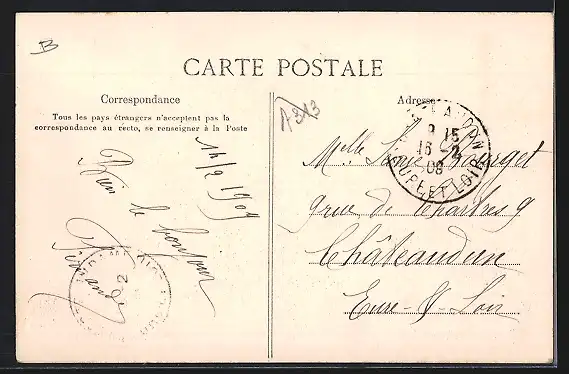 B
CARTE POSTALE
Correspondance
Tous les pays étrangers n'acceptent pas la
correspondance au recto, se renseigner à la Poste
14/2 1909
Bien le bonjour
Adresse
A213
15
16 -2
09
EURE ET LOIR
Melle
9 rue de Chartres 9
Châteaudun
Eure-&-Loir